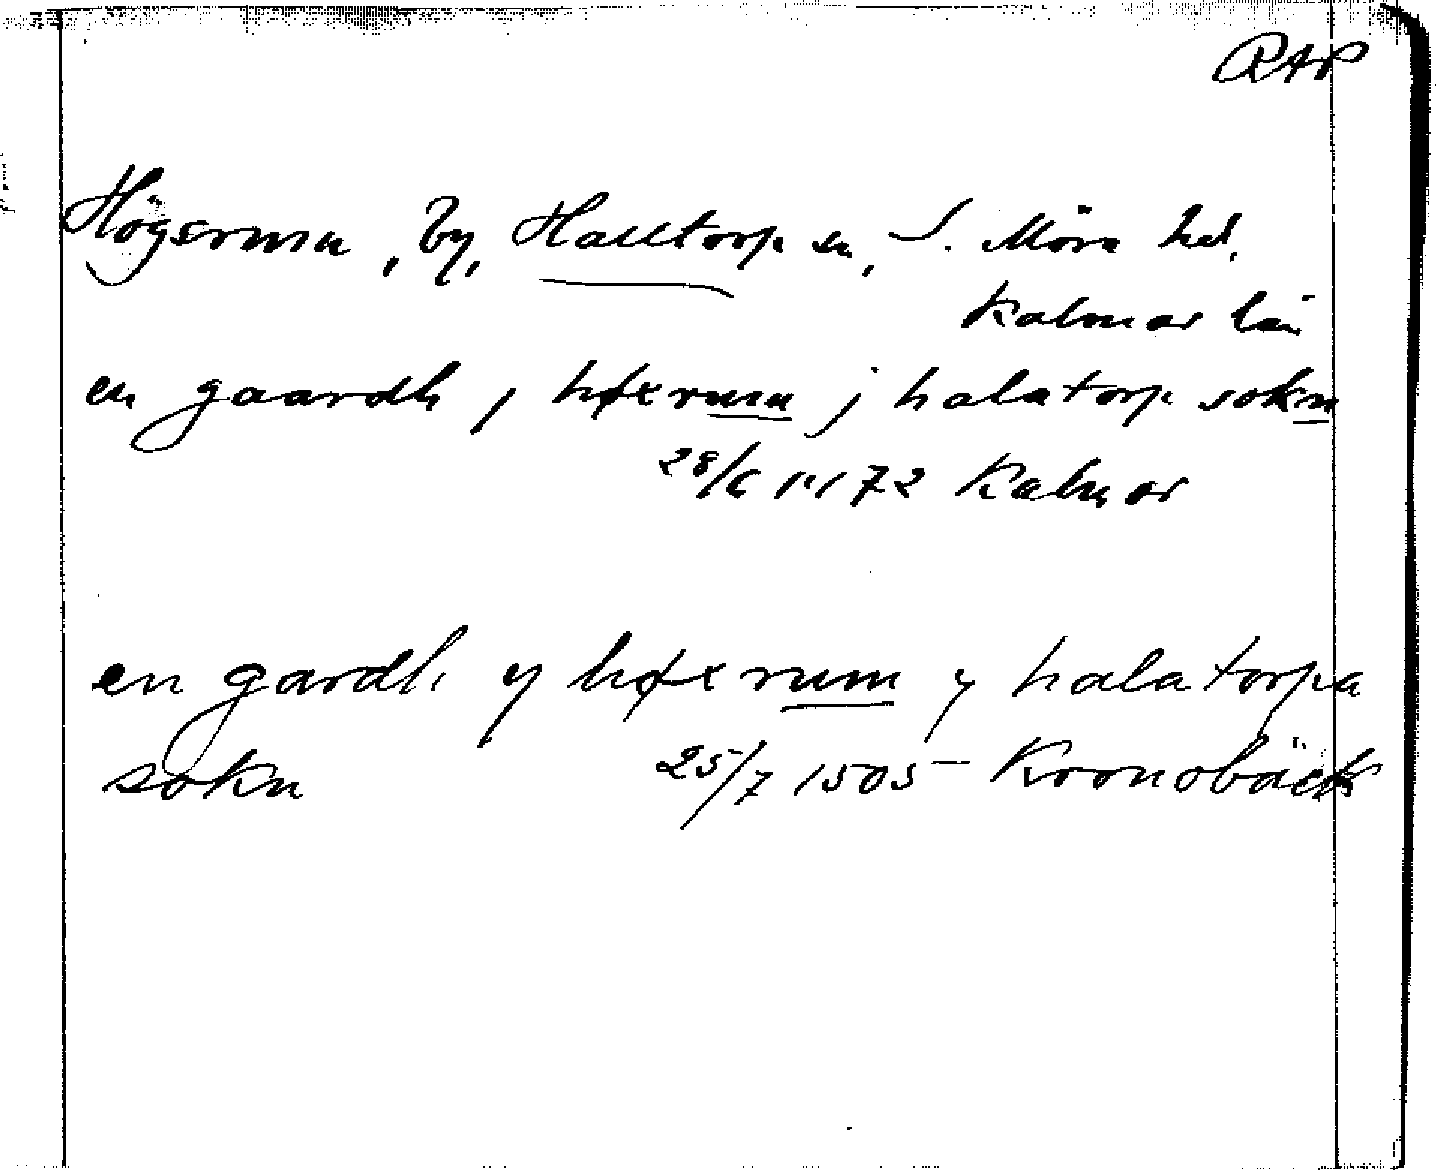 RAP
Högsrum, by, Halltorp sn, S. Möre hd,
Kalmar län
en gaardh j høxrum j halatorp sokn
28/6 1472 Kalmar
en gardh y høxrum y halatorpa
sokn 25/7 1505 Kronobäck